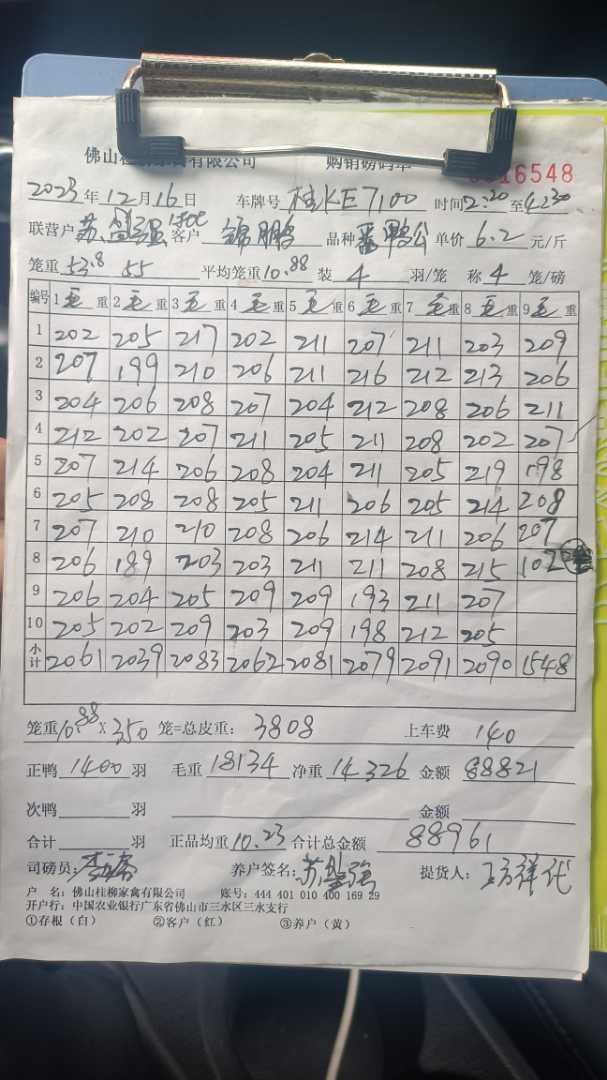 佛山桂柳家禽有限公司 购销磅码单 0016548
2023年12月16日 车牌号 桂KE7100 时间2:20至4:30
联营户 苏 强 1400 客户 锦鹏 品种 番鸭公 单价 6.2 元/斤
笼重 53.8 55 平均笼重10.88 装 4 羽/笼 称 4 笼/磅
编号 1毛重 2毛重 3毛重 4毛重 5毛重 6毛重 7毛重 8毛重 9毛重
1 202 205 217 202 211 207 211 203 209
2 207 199 210 206 211 216 212 213 206
3 204 206 208 207 204 212 208 206 211
4 212 202 207 211 205 211 208 202 207
5 207 214 206 208 204 211 205 219 198
6 205 208 208 205 211 206 205 214 208
7 207 210 210 208 206 214 211 206 207
8 206 189 203 203 211 211 208 215 102
9 206 204 205 209 209 193 211 207
10 205 202 209 203 209 198 212 205
小计 2061 2039 2083 2062 2081 2079 2091 2090 1548
笼重10.88 X 350 笼=总皮重: 3808 上车费 140
正鸭 1400 羽 毛重 18134 净重 14326 金额 88821
次鸭 羽 金额
合计 羽 正品均重 10.23 合计总金额 88961
司磅员: 养户签名: 苏 强 提货人:
户 名: 佛山桂柳家禽有限公司 账号: 444 401 010 400 169 29
开户行: 中国农业银行广东省佛山市三水区三水支行
①存根（白） ②客户（红） ③养户（黄）